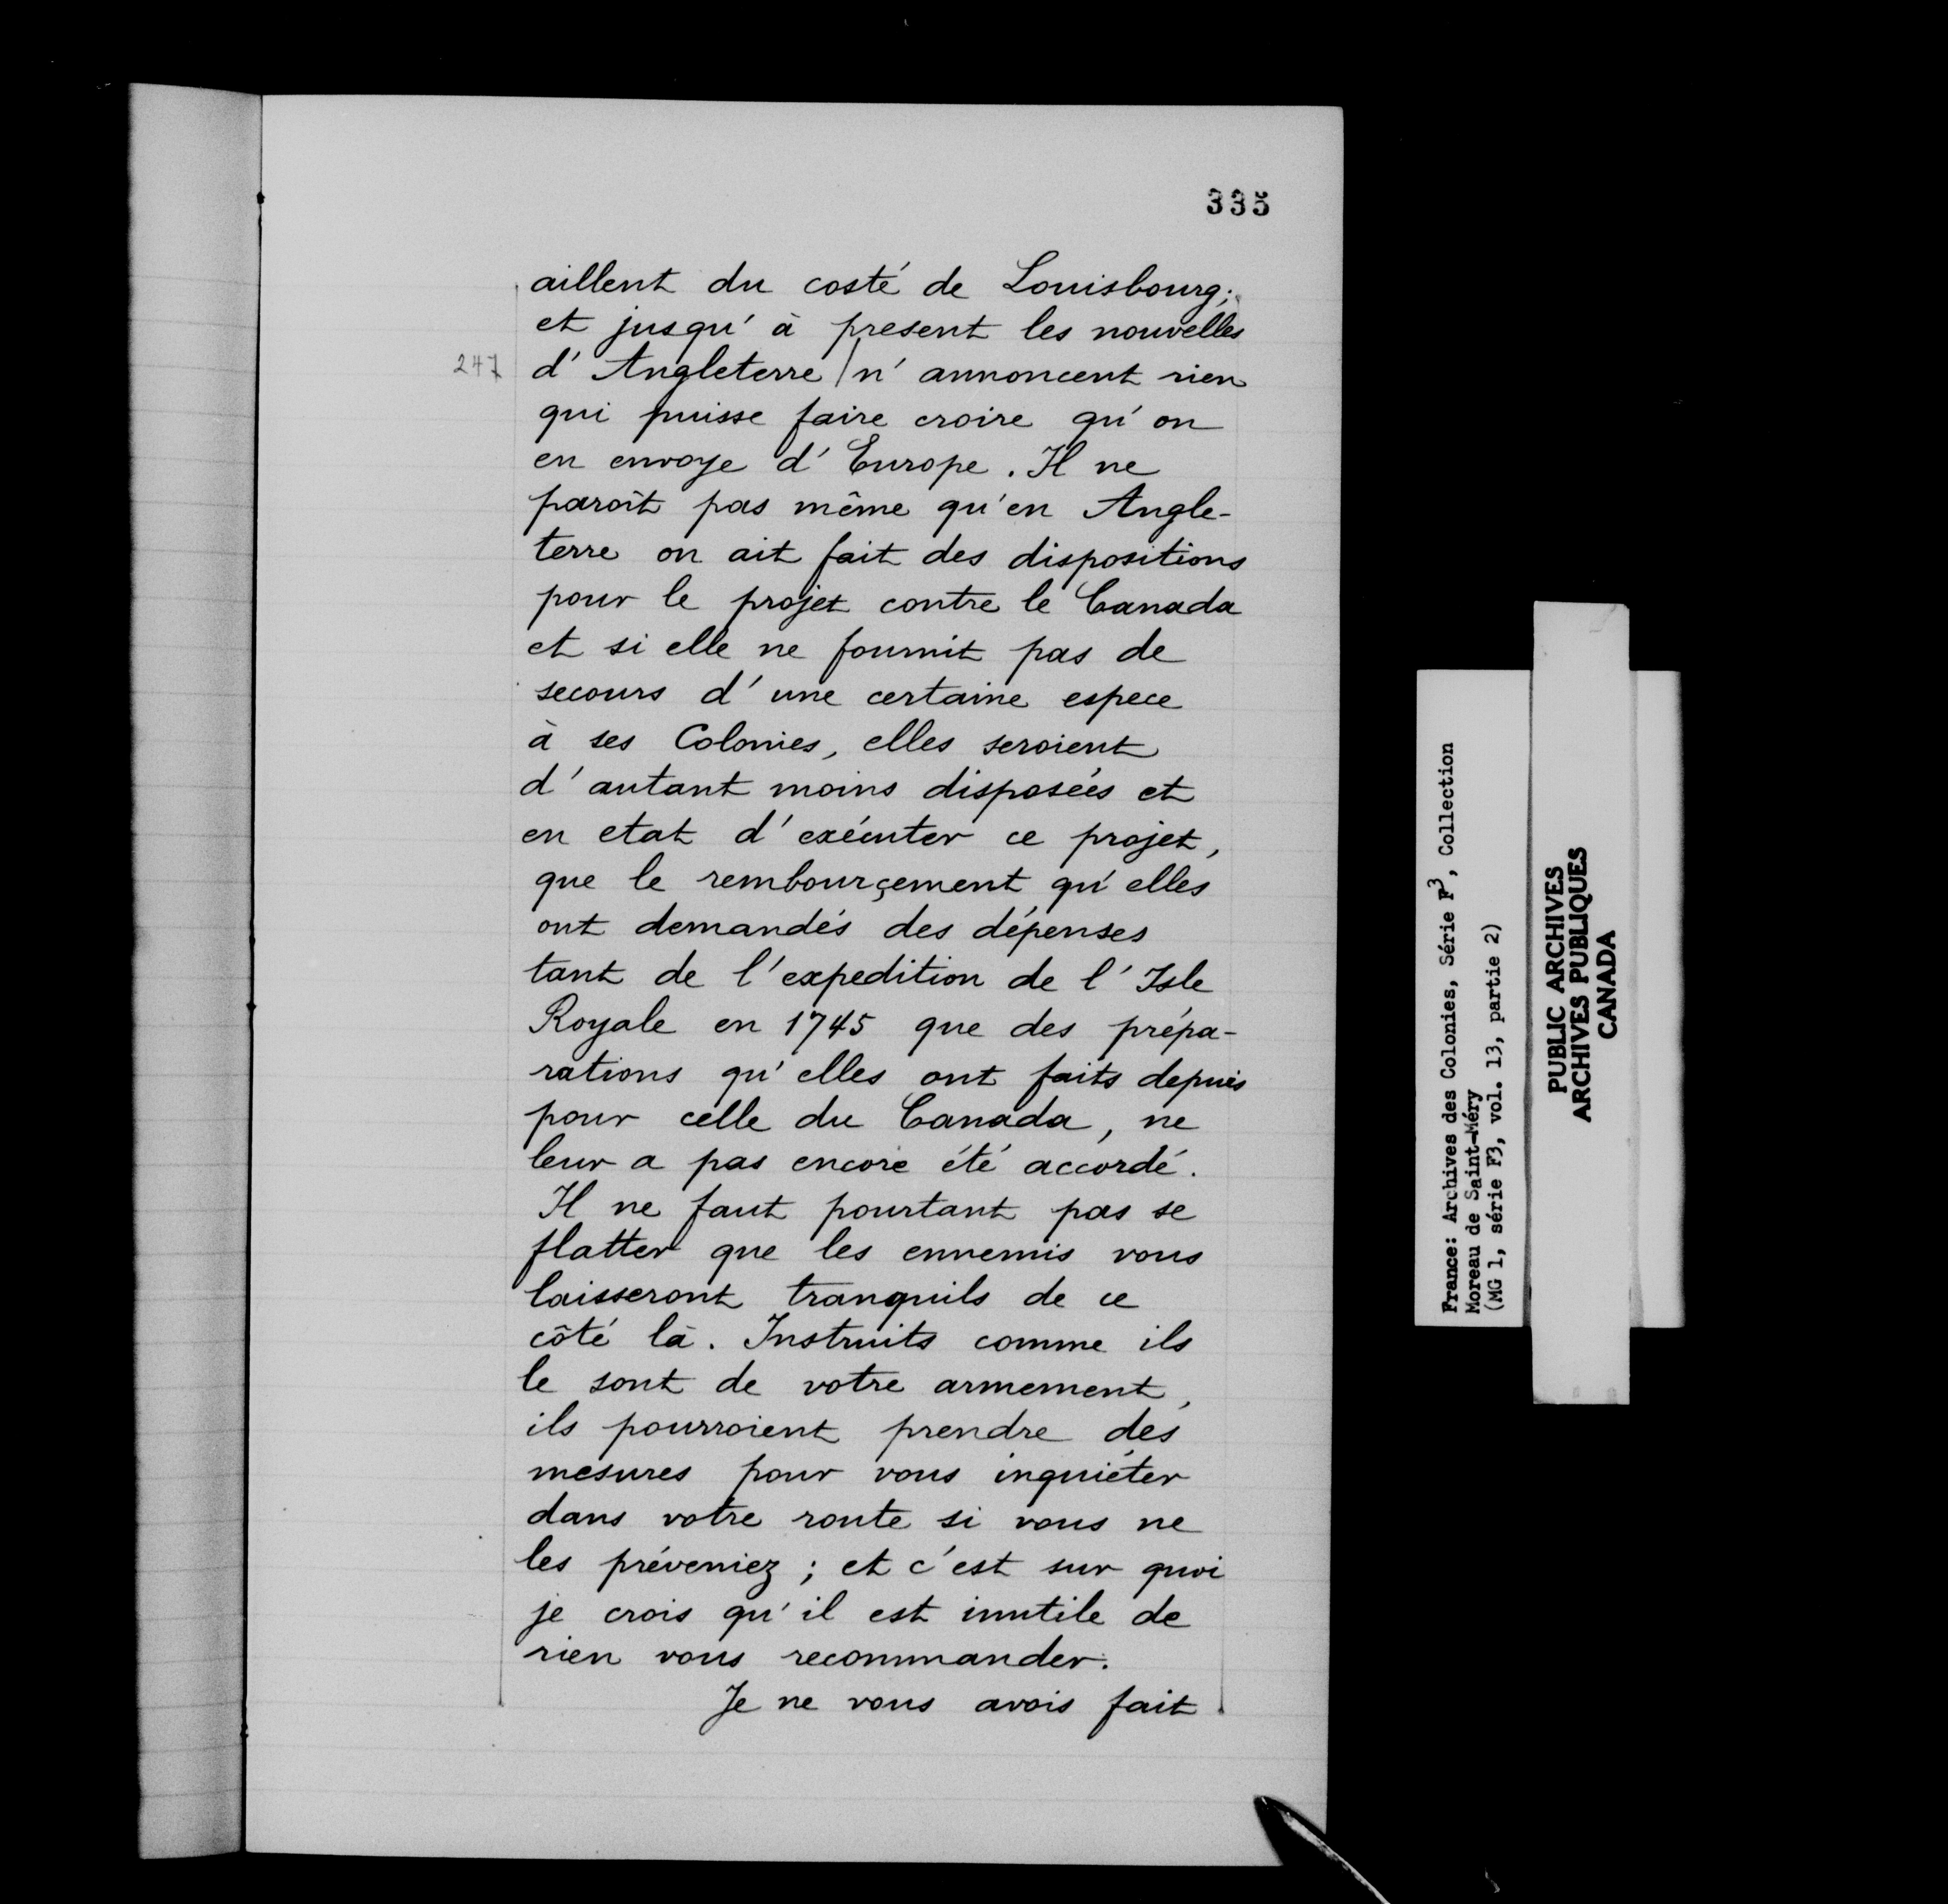 335
aillent du costé de Louisbourg;
et jusqu'à present les nouvelles
247 d'Angleterre / n'annoncent rien
qui puisse faire croire qu'on
en envoye d'Europe. Il ne
paroît pas même qu'en Angle-
terre on ait fait des dispositions
pour le projet contre le Canada
et si elle ne fournit pas de
secours d'une certaine espece
à ses Colonies, elles seroient
d'autant moins disposées et
en etat d'exécuter ce projet,
que le rembourçement qu'elles
ont demandés des dépenses
tant de l'expedition de l'Isle
Royale en 1745 que des prépa-
rations qu'elles ont faits depuis
pour celle du Canada, ne
leur a pas encore été accordé.
Il ne faut pourtant pas se
flatter que les ennemis vous
laisseront tranquils de ce
côté là. Instruits comme ils
le sont de votre armement,
ils pourroient prendre des
mesures pour vous inquiéter
dans votre route si vous ne
les préveniez; et c'est sur quoi
je crois qu'il est inutile de
rien vous recommander.
Je ne vous avois fait
France: Archives des Colonies, Série F³, Collection
Moreau de Saint-Méry
(MG 1, série F3, vol. 13, partie 2)
PUBLIC ARCHIVES
ARCHIVES PUBLIQUES
CANADA